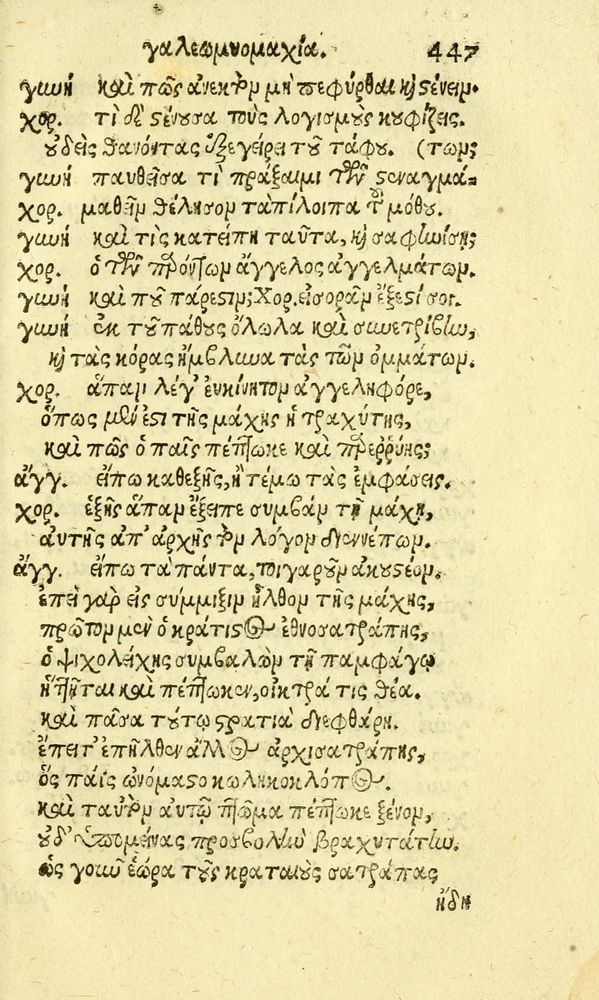 γαλεωμυομαχία. 447
γυνή καὶ πῶς ἀνεκτὸν μὴ πεφύρθαι καὶ στένειν.
χορ. τί δὲ στένουσα τοὺς λογισμοὺς κουφίζεις.
οὐδεὶς θανόντας ἐξεγείρει τοῦ τάφου. (των;
γυνή παυθεῖσα τί πράξαιμι τῶν στεναγμά-
χορ. μαθεῖν θέλησον ταπίλοιπα τοῦ μόθου.
γυνή καὶ τίς κατείπῃ ταῦτα, καὶ σαφηνίσῃ;
χορ. ὁ τῶν προόντων ἄγγελος ἀγγελμάτων.
γυνή καὶ ποῦ πάρεστιν; Χορ. εἰσορᾶν ἔξεστί σοι.
γυνή ἐκ τοῦ πάθους ὄλωλα καὶ συνετρίβην,
καὶ τὰς κόρας ἤμβλυνα τὰς τῶν ὀμμάτων.
χορ. ἅπαν λέγ' ἐνκίνητον ἀγγεληφόρε,
ὅπως μέν ἐστι τῆς μάχης ἡ τραχύτης,
καὶ πῶς ὁ παῖς πέπτωκε καὶ παρερρύης;
ἄγγ. εἴπω καθεξῆς, ἢ τέμω τὰς ἐμφάσεις.
χορ. ἑξῆς ἅπαν ἔξειπε συμβὰν τῇ μάχῃ,
αὐτῆς ἀπ' ἀρχῆς τὸν λόγον διεννέπων.
ἄγγ. εἴπω τὰ πάντα, τοιγαροῦν ἀκουστέον.
ἐπεὶ γὰρ εἰς σύμμιξιν ἦλθον τῆς μάχης,
πρῶτον μὲν ὁ κράτιστος ἐθνοσατράπης,
ὁ ψιχολείχης συμβαλὼν τῇ παμφάγῳ
ἥττηται καὶ πέπτωκεν, οἰκτρά τις θέα.
καὶ πᾶσα τούτῳ στρατιὰ διεφθάρη.
ἔπειτ' ἐπῆλθεν ἄλλος ἀρχισατράπης,
ὃς παῖς ὠνόμαστο κωληκοκλόπος.
καὶ ταὐτὸν αὐτῷ πτῶμα πέπτωκε ξένον,
οὐδ' ὑπομείνας προσβολὴν βραχυτάτην.
ὡς γοῦν ἑώρα τοὺς κραταιοὺς σατράπας
ἤδη